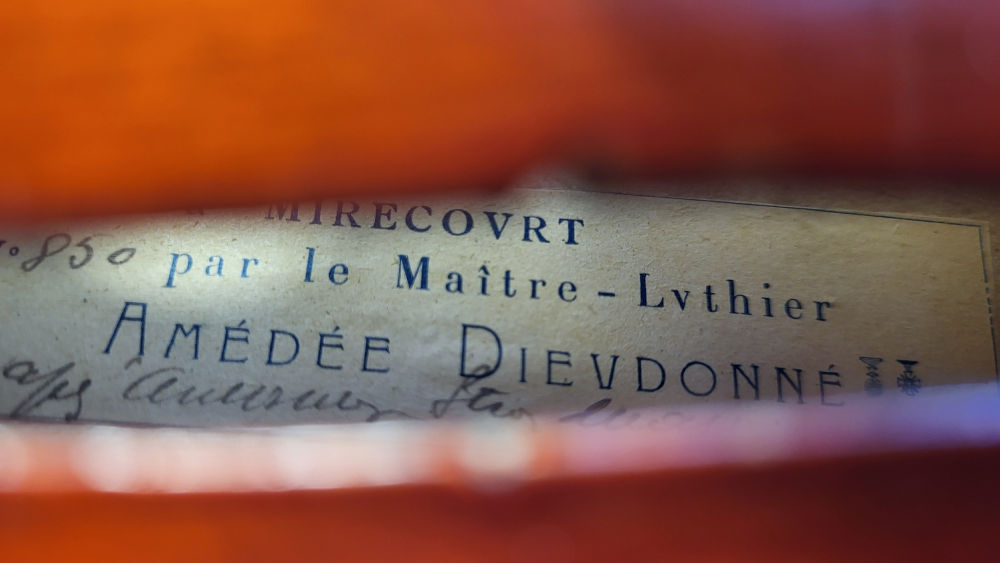 à MIRECOVRT
N° 850 par le Maître-Lvthier
AMÉDÉE DIEVDONNÉ